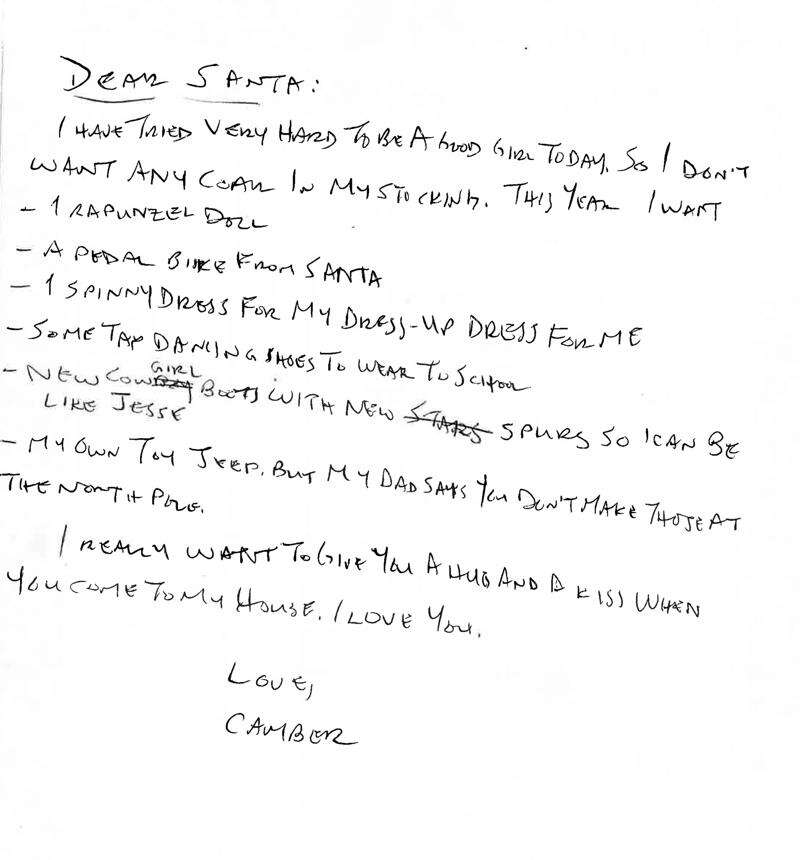 DEAR SANTA:
I HAVE TRIED VERY HARD TO BE A GOOD GIRL TODAY. SO I DON'T
WANT ANY COAL IN MY STOCKING. THIS YEAR I WANT
- 1 RAPUNZEL DOLL
- A PEDAL BIKE FROM SANTA
- 1 SPINNY DRESS FOR MY DRESS-UP DRESS FOR ME
- SOME TAP DANCING SHOES TO WEAR TO SCHOOL
GIRL
- NEW COWBOY BOOTS WITH NEW STARS SPURS SO I CAN BE
LIKE JESSE
- MY OWN TOY JEEP. BUT MY DAD SAYS YOU DON'T MAKE THOSE AT
THE NORTH POLE.
I REALLY WANT TO GIVE YOU A HUG AND A KISS WHEN
YOU COME TO MY HOUSE. I LOVE YOU.
LOVE,
CAMBER